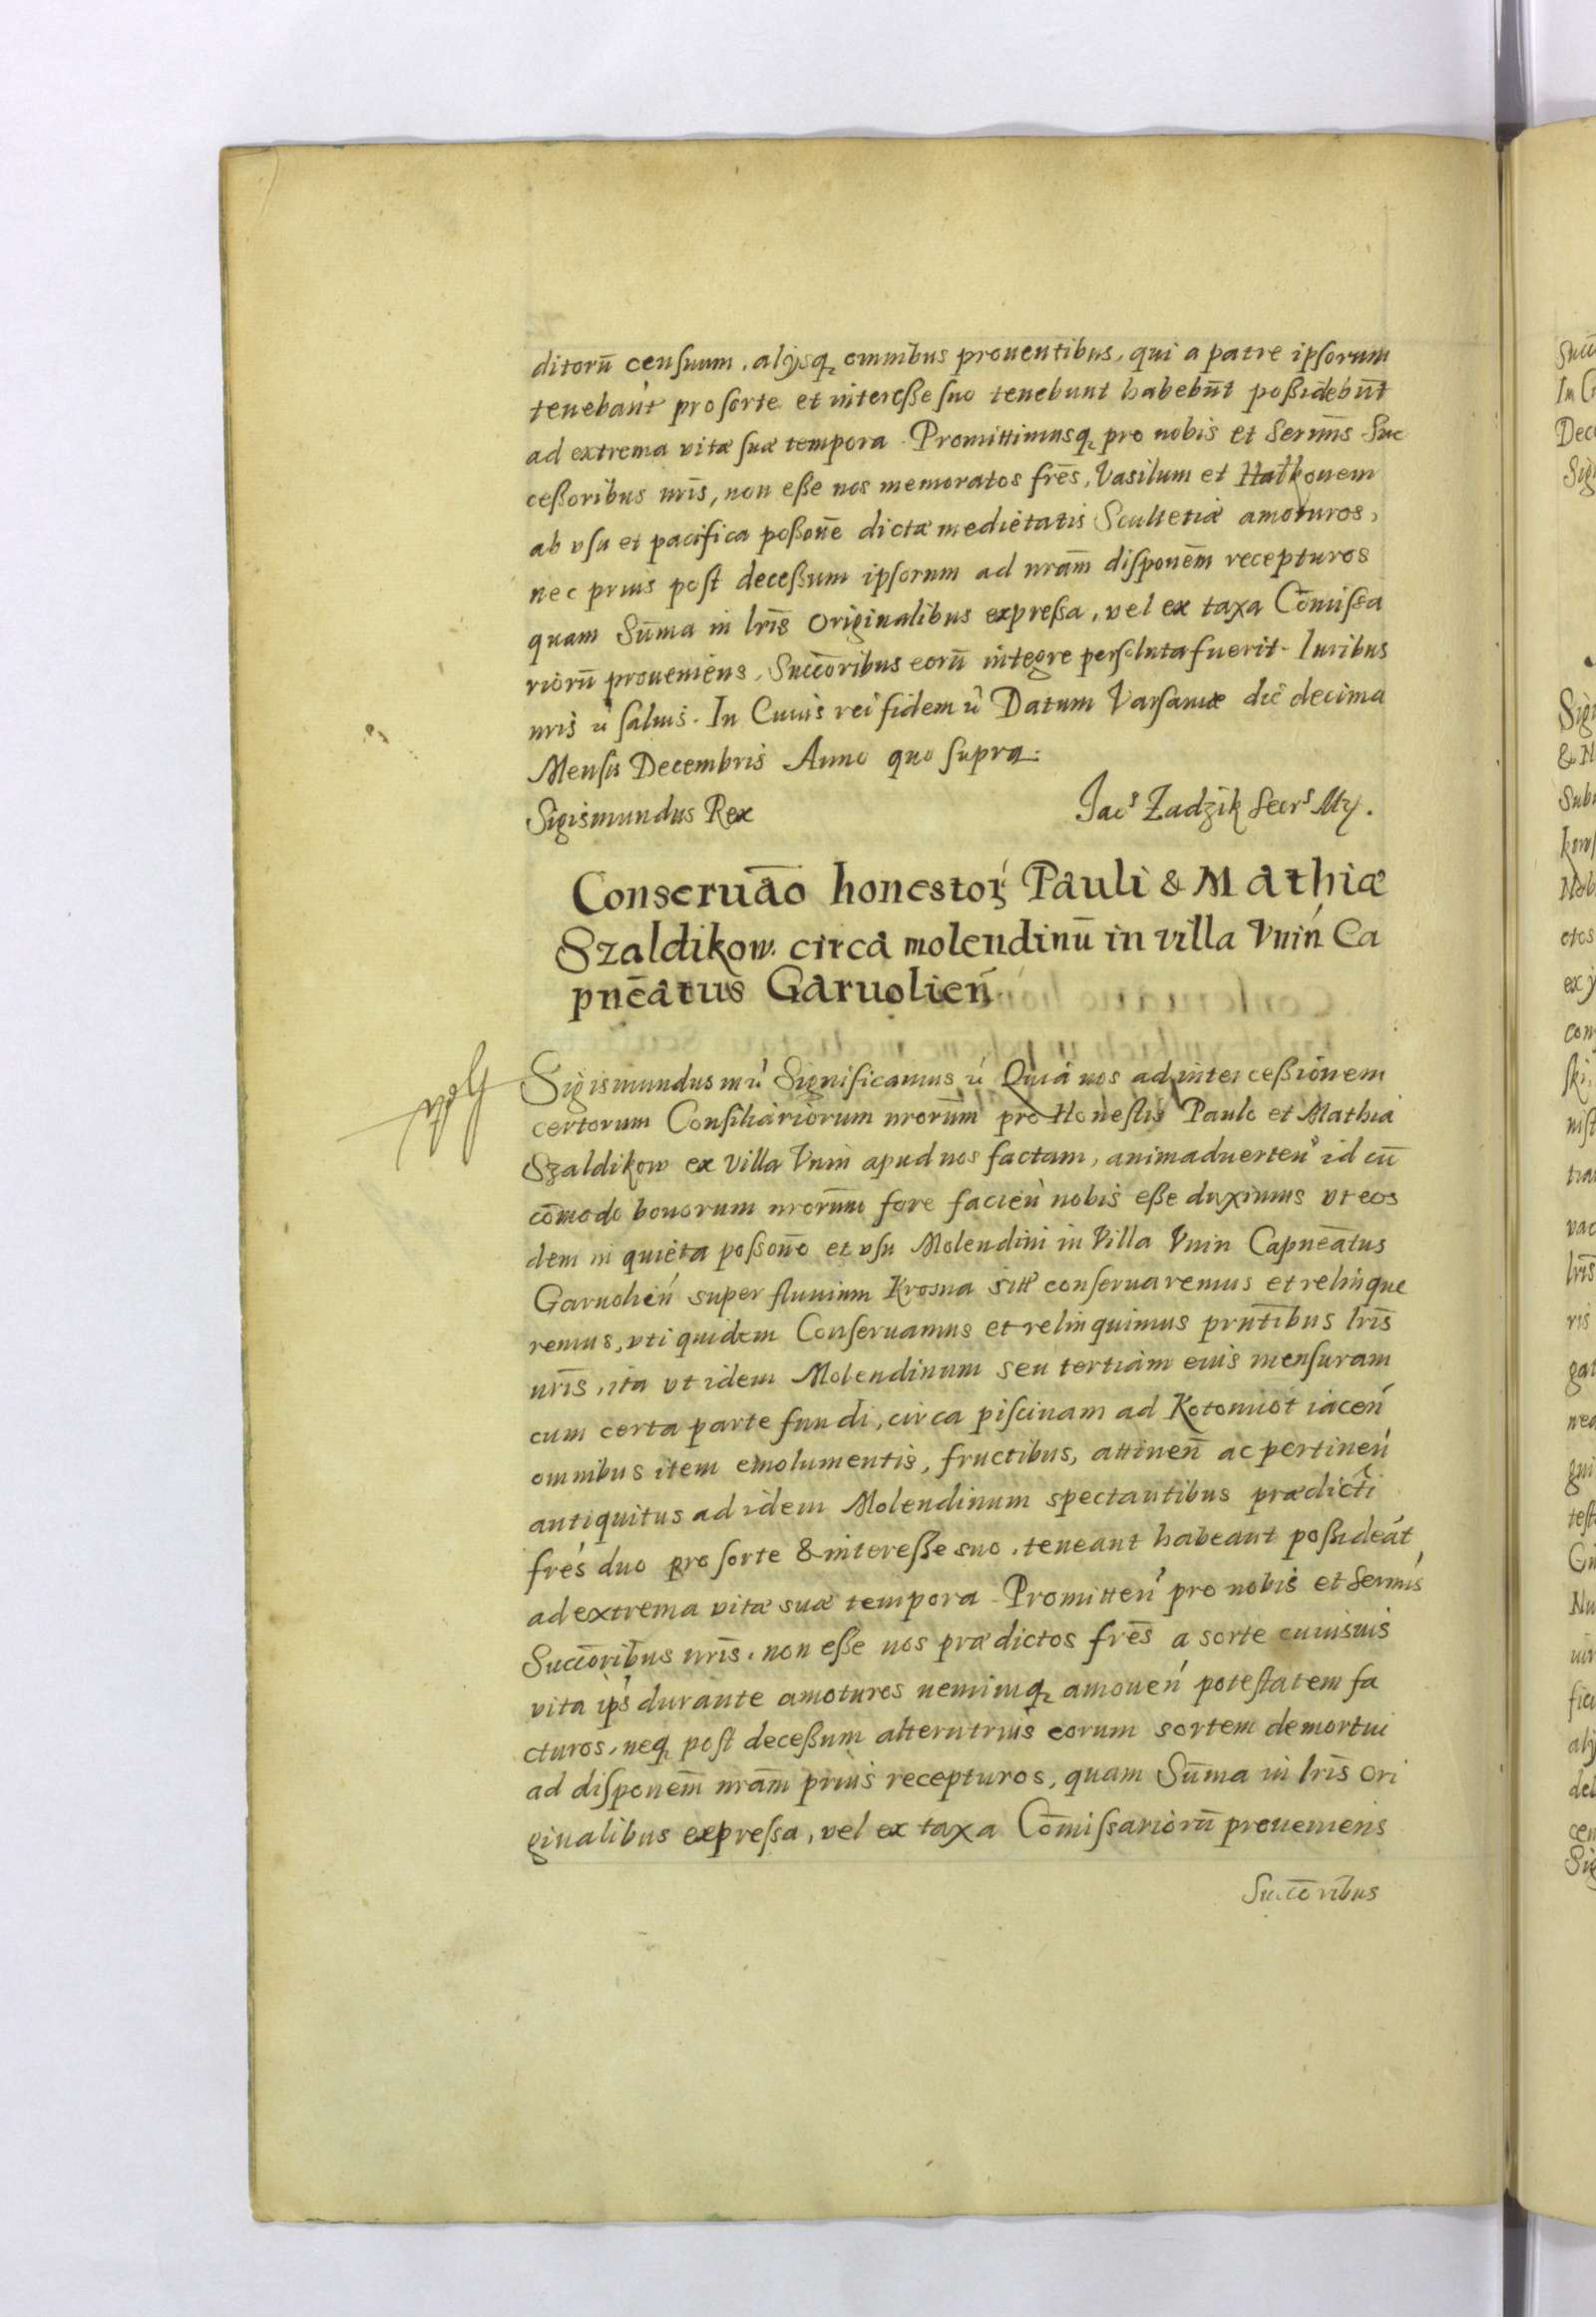 ditorū censuum, alijsq̨ omnibus prouentibus, qui a patre ipsorum
tenebant pro sorte et interesse suo tenebunt habebūt possidebūt
ad extrema vitæ suæ tempora. Promittimusq̨ pro nobis et Serm̄is Suc
cessoribus nr̄is, non esse nos memoratos fr̄es, Vasilum et Hatkonem
ab vsu et pacifica possōne dictæ medietatis Scultetiæ amoturos,
nec prius post decessum ipsorum ad nrām disponēm recepturos
quam Sūma in lr̄is originalibus expressa, vel ex taxa Cōmissa
riorū proueniens, Succōribus eorū integre persoluta fuerit. Iuribus
nris ū saluis. In Cuius rei fidem ū Datum Varsauiæ die decima
Mensis Decembris Anno quo supra.
Sigismundus Rex
Jacˢ Zadzik Secrˢ Mṛ.
Conseruāo honestoꝝ Pauli & Mathiæ
Szaldikow. circa molendinū in villa Vnin Ca
pnēatus Garuolień
Sigismundus ū Significamus ū Quia nos ad intercessionem
certorum Consiliariorum nrorūm pro Honestis Paulo et Mathia
Szaldikow ex Villa Vnin apud nos factam, animaduerteń id cū
cōmodo bonorum nrorūm fore facień nobis esse duximus vt eos
dem in quieta possonē et vsu Molendini in Villa Vnin Capnēatus
Garuolień super fluuium Krosna sitt conseruaremus et relinque
remus, vti quidem Conseruamus et relinquimus prntībus lr̄is
nr̄is, ita vt idem Molendinum seu tertiam eius mensuram
cum certa parte fundi, circa piscinam ad Kotomiot iaceń
omnibus item emolumentis, fructibus, attineń ac pertineń
antiquitus ad idem Molendinum spectantibus prædicti
frés duo pro sorte & interesse suo, teneant habeant possideāt
ad extrema vitæ suæ tempora. Promitteń pro nobis et Sermis
Succōribus nr̄is, non esse nos prædictos fr̄es a sorte cuiusuis
vita ips̄ durante amoturos neminiq̨ amoueń potestatem fa
cturos, neq̨ post decessum alterutrius eorum sortem demortui
ad disponēm nrām prius recepturos, quam Sūma in lr̄is ori
ginalibus expressa, vel ex taxa Cōmissariorū proueniens
Succōribus